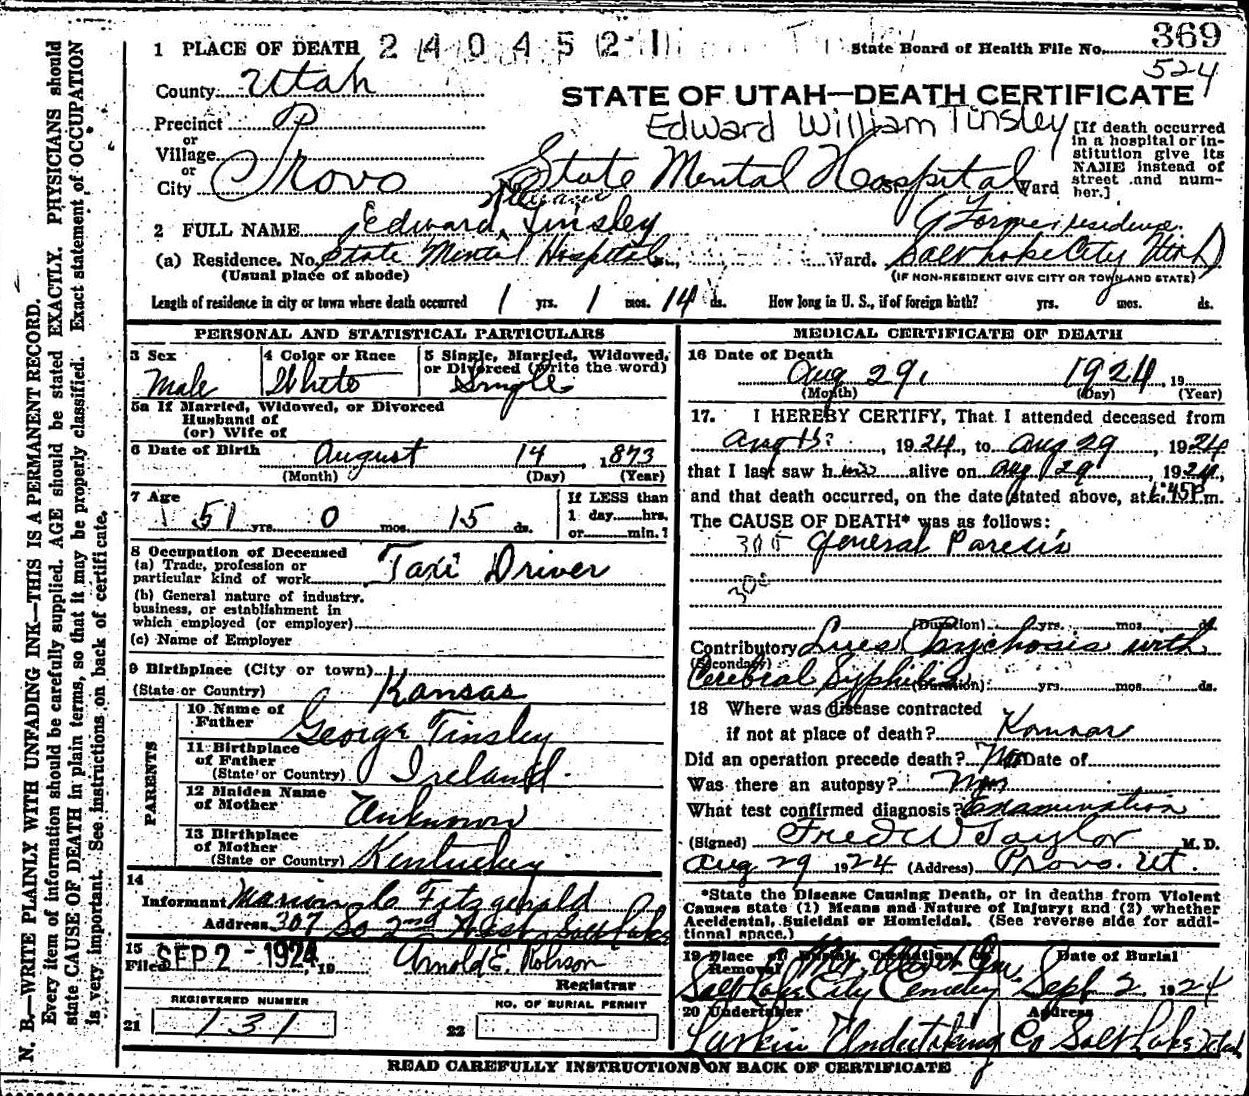 369
1 PLACE OF DEATH 2 4 0 4 5 2 1 State Board of Health File No.
524
County Utah
STATE OF UTAH—DEATH CERTIFICATE
Precinct P
Edward William Tinsley
[If death occurred in a hospital or institution give its NAME instead of street and number.]
or
Village
or
City Provo State Mental Hospital St. Ward
William
2 FULL NAME Edward Tinsley
(a) Residence. No. State Mental Hospital Ward.
(Usual place of abode)
Former residence
Salt Lake City Utah
(IF NON-RESIDENT GIVE CITY OR TOWN AND STATE)
Length of residence in city or town where death occurred 1 yrs. 1 mos. 14 ds. How long in U. S., if of foreign birth? yrs. mos. ds.
PERSONAL AND STATISTICAL PARTICULARS
3 Sex
Male
4 Color or Race
White
5 Single, Married, Widowed, or Divorced (write the word)
Single
5a If Married, Widowed, or Divorced
Husband of
(or) Wife of
6 Date of Birth August 14, 1873
(Month) (Day) (Year)
7 Age
51 yrs. 0 mos. 15 ds.
If LESS than
1 day hrs.
or min.?
8 Occupation of Deceased
(a) Trade, profession or
particular kind of work Taxi Driver
(b) General nature of industry,
business, or establishment in
which employed (or employer)
(c) Name of Employer
9 Birthplace (City or town)
(State or Country) Kansas
PARENTS
10 Name of
Father George Tinsley
11 Birthplace
of Father
(State or Country) Ireland
12 Maiden Name
of Mother Unknown
13 Birthplace
of Mother
(State or Country) Kentucky
14
Informant Fitzgerald
Address 307 So 2nd West Salt Lake
15
Filed SEP 2 - 1924, 19 Arnold E. Robison
Registrar
REGISTERED NUMBER
21 131
NO. OF BURIAL PERMIT
22
MEDICAL CERTIFICATE OF DEATH
16 Date of Death
Aug 29, 1924, 19
(Month) (Day) (Year)
17. I HEREBY CERTIFY, That I attended deceased from
Aug 15, 1924, to Aug 29, 1924
that I last saw him alive on Aug 29, 1924,
and that death occurred, on the date stated above, at 45P m.
The CAUSE OF DEATH* was as follows:
305 General Paresis
308
(Duration) yrs. mos. ds.
Contributory Lues Psychosis with
(Secondary)
Cerebral Syphilis (Duration) yrs. mos. ds.
18 Where was disease contracted
if not at place of death?
Did an operation precede death? No Date of
Was there an autopsy?
What test confirmed diagnosis? Examination
(Signed) Fred W Taylor M. D.
Aug 29 1924 (Address) Provo. Ut.
*State the Disease Causing Death, or in deaths from Violent
Causes state (1) Means and Nature of Injury; and (2) whether
Accidental, Suicidal or Homicidal. (See reverse side for addi-
tional space.)
19 Place of Burial, Cremation or Date of Burial
Removal Mt. Olivet
Salt Lake City Cemetery Sept 2 1924
20 Undertaker Address
Larkin Undertaking Co Salt Lake Utah
READ CAREFULLY INSTRUCTIONS ON BACK OF CERTIFICATE
N. B.—WRITE PLAINLY WITH UNFADING INK—THIS IS A PERMANENT RECORD.
Every item of information should be carefully supplied. AGE should be stated EXACTLY. PHYSICIANS should
state CAUSE OF DEATH in plain terms, so that it may be properly classified. Exact statement of OCCUPATION
is very important. See instructions on back of certificate.